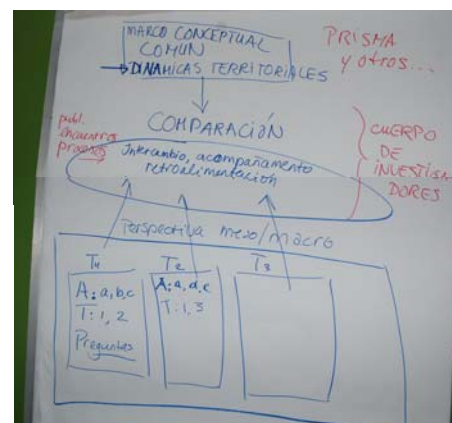 MARCO CONCEPTUAL
COMUN
DINAMICAS TERRITORIALES
PRISMA
y otros...
COMPARACIÓN
publ.
encuentros
procesos
Intercambio, acompañamento
retroalimentación
CUERPO
DE
INVESTIGA
DORES
Perspectiva mezo/macro
T1
A: a,b,c
T: 1, 2
Preguntas
T2
A: a,d,c
T: 1, 3
T3